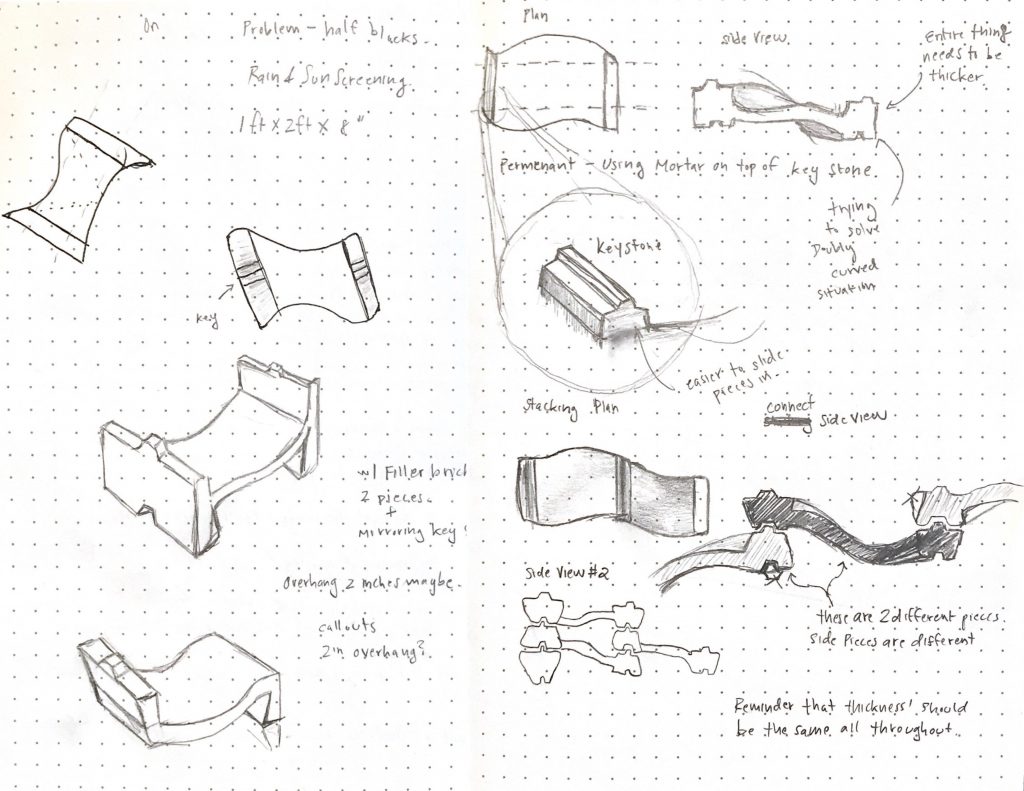 On
Problem - half blacks.
Rain & Sun Screening.
1 ft x 2 ft x 8"
key
w/ Filler brick
2 pieces.
+
Mirroring key
Overhang 2 inches maybe.
callouts
2in overhang?
Plan
side view
Entire thing
needs to be
thicker.
Permenant - Using Mortar on top of key stone.
trying
to solve
Doubly
curved
situation
Keystone
easier to slide
pieces in.
Stacking Plan
connect
Side View
Side View #2
these are 2 different pieces.
Side Pieces are different
Reminder that thickness' should
be the same all throughout.